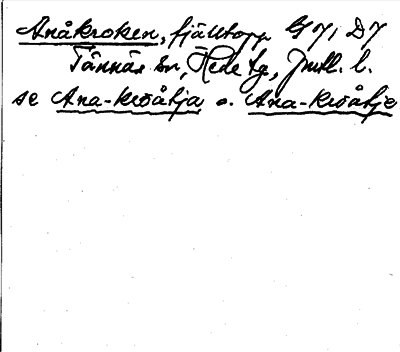 Anåkroken, fjälltopp G7, D7
Tännäs sn, Hede tg, Jmtl. l.
se Ana-kroåkja o. Ana-kroåkje